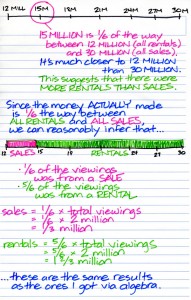 12 MILL 15M 30M
15 MILLION is 1/6 of the way
between 12 MILLION (all rentals)
and 30 MILLION (all sales).
It's much closer to 12 MILLION
than 30 MILLION.
This suggests that there were
MORE RENTALS THAN SALES.
Since the money ACTUALLY made
is 1/6 the way between
ALL RENTALS and ALL SALES,
we can reasonably infer that...
12 15 18 21 24 27 30
SALES RENTALS
• 1/6 of the viewings
was from a SALE
• 5/6 of the viewings
was from a RENTAL
sales = 1/6 × total viewings
= 1/6 × 2 million
= 1/3 million
rentals = 5/6 × total viewings
= 5/6 × 2 million
= 5/3 million
...these are the same results
as the ones I got via algebra.